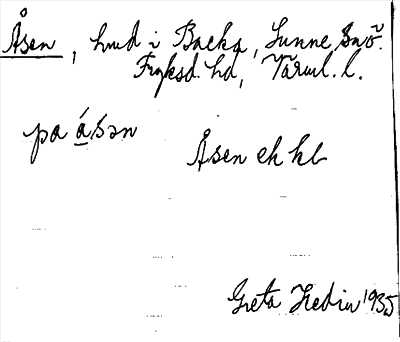 Åsen, hmd i Backa, Sunne sn
Fryksd. hd, Värml. l.
på ásən
Åsen ek hl
Greta Hedin 1935